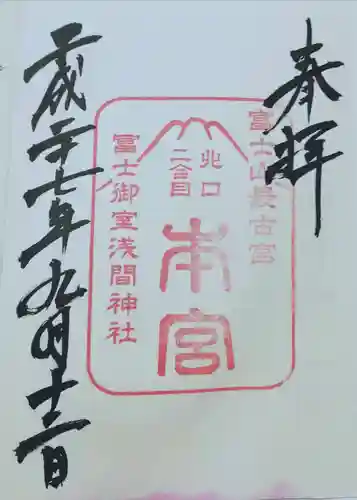 奉拝
富士山最古宮
北口
二合目
本宮
冨士御室浅間神社
平成二十七年九月十三日